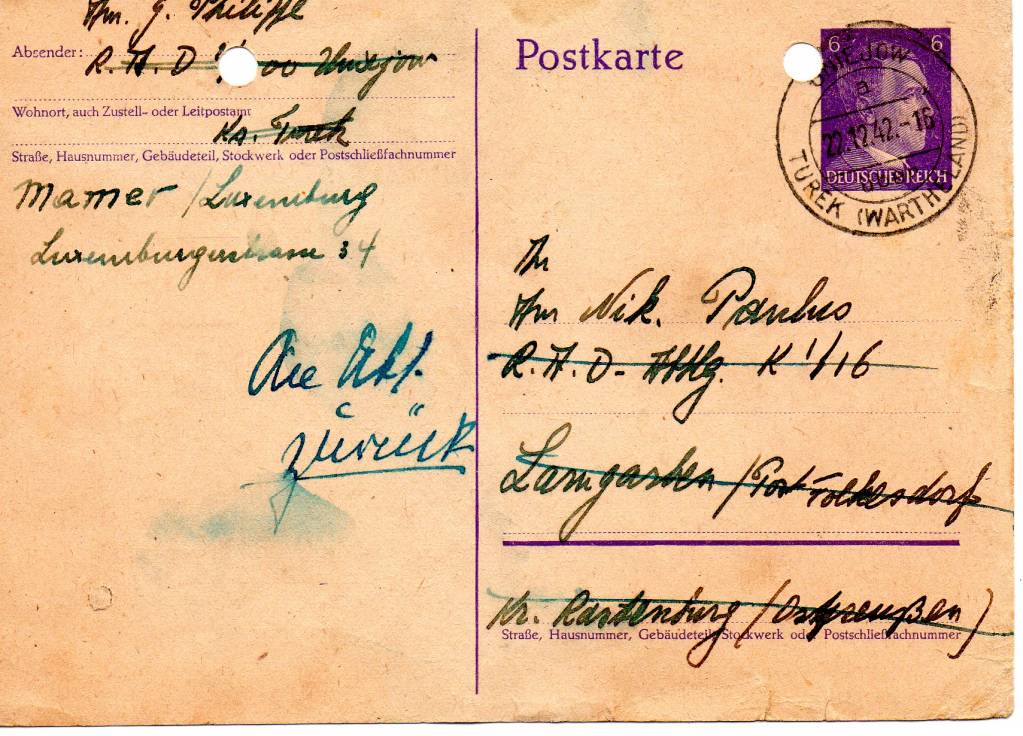 Am. J. Philippe
Absender: R. A. D 00
Wohnort, auch Zustell- oder Leitpostamt
Kr. Turek
Straße, Hausnummer, Gebäudeteil, Stockwerk oder Postschließfachnummer
Mamer / Luxemburg
Luxemburgerstrasse 34
zurück
Postkarte
6 6
DEUTSCHES REICH
22.12.42.-16
TUREK (WARTHELAND)
Nik. Paulus
R. A. D - Abtlg. K 1/116
Larngarben / Post Tolkesdorf
Kr. Rastenburg / (Ostpreußen)
Straße, Hausnummer, Gebäudeteil, Stockwerk oder Postschließfachnummer